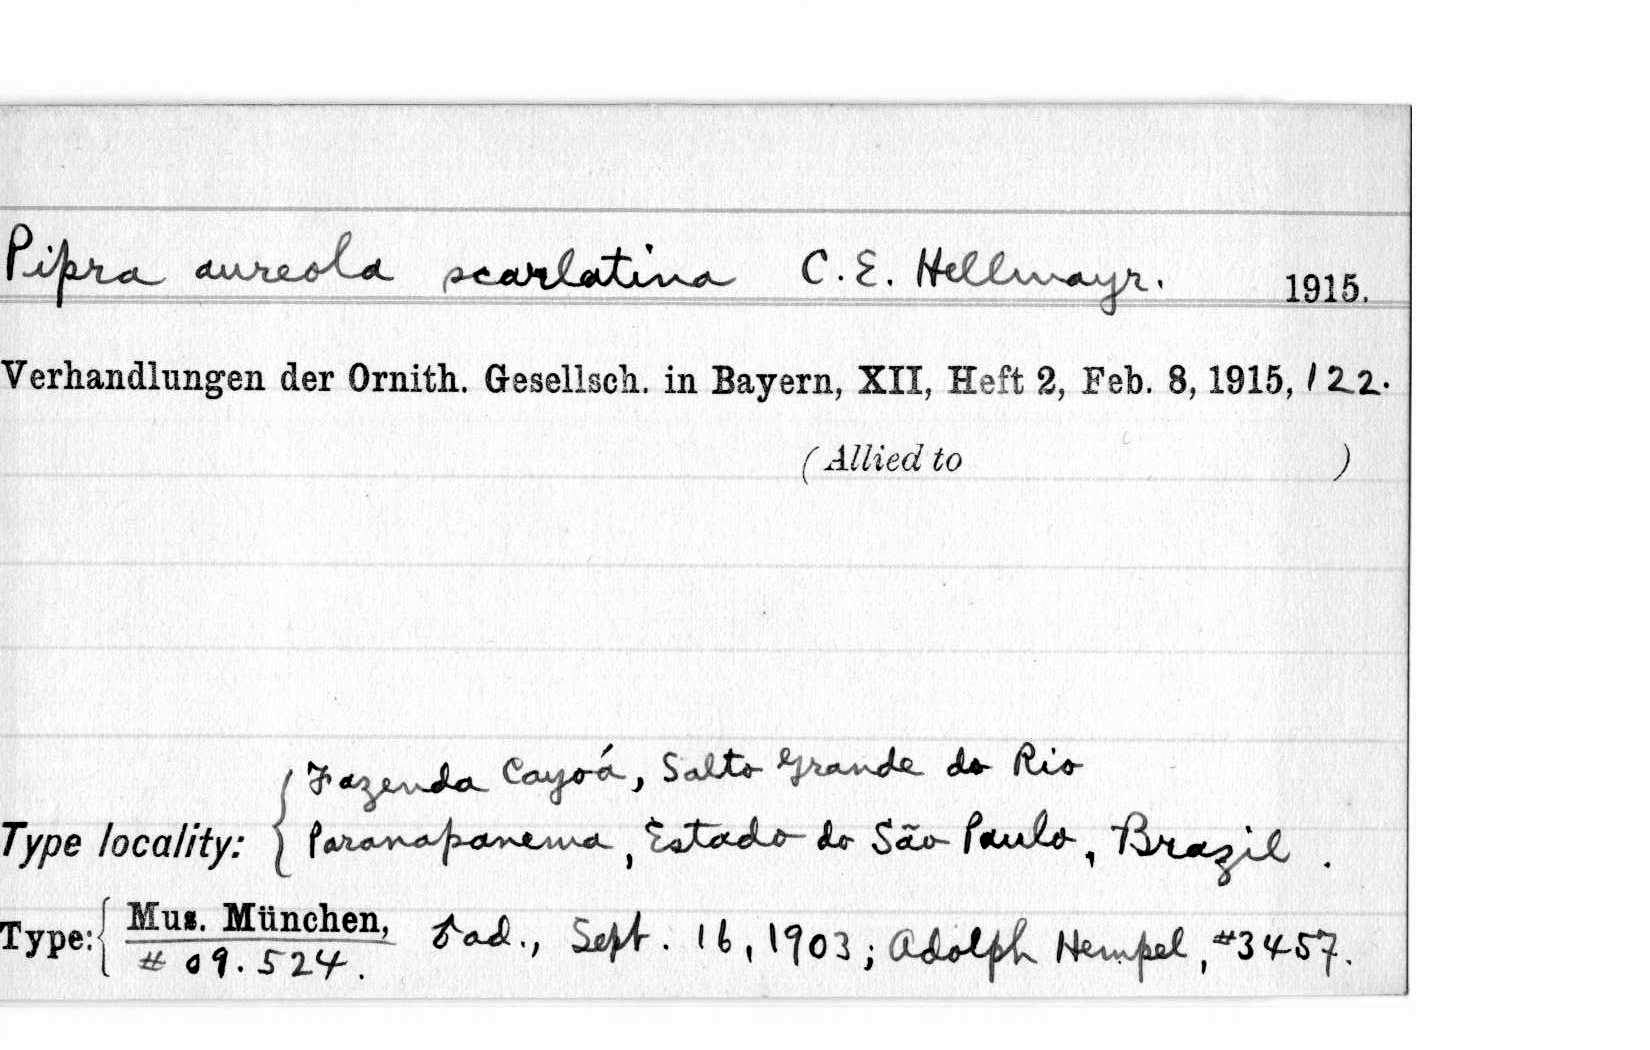 Pipra aureola scarlatina C. E. Hellmayr. 1915.
Verhandlungen der Ornith. Gesellsch. in Bayern, XII, Heft 2, Feb. 8, 1915, 122.
(Allied to )
Fazenda Cayoá, Salto Grande do Rio
Type locality: Paranapanema, Estado do São Paulo, Brazil.
Type: Mus. München, ad., Sept. 16, 1903; Adolph Hempel, #3457.
# 09.524.